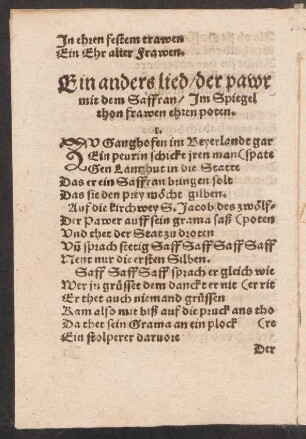 In ehren festem trawen
Ein Ehr alter Frawen.
Ein anders lied/der pawr
mit dem Saffran/ Im Spiegel
thon frawen ehren poten.
1.
ZV Ganghofen im Beyerlande gar
Ein peurin schickt jren man (spate
Gen Lanßhut in die Statte
Das er ein Saffran bringen solt
Das sie den prey möcht gilben.
Auf die kirchwey S. Jacob des zwölf-
Der Pawer auff sein grama saß (poten
Vnd thet der Stat zu droten
Vñ sprach stetig Saff Saff Saff Saff
Nent nur die ersten Silben.
Saff Saff Saff sprach er gleich wie
Wer jn grüsset dem danckt er nit (er rit
Er thet auch niemand grüssen
Kam also mit biß auf die pruck ans tho
Da thet sein Grama an ein plock (re
Ein stolperer daruore
Der